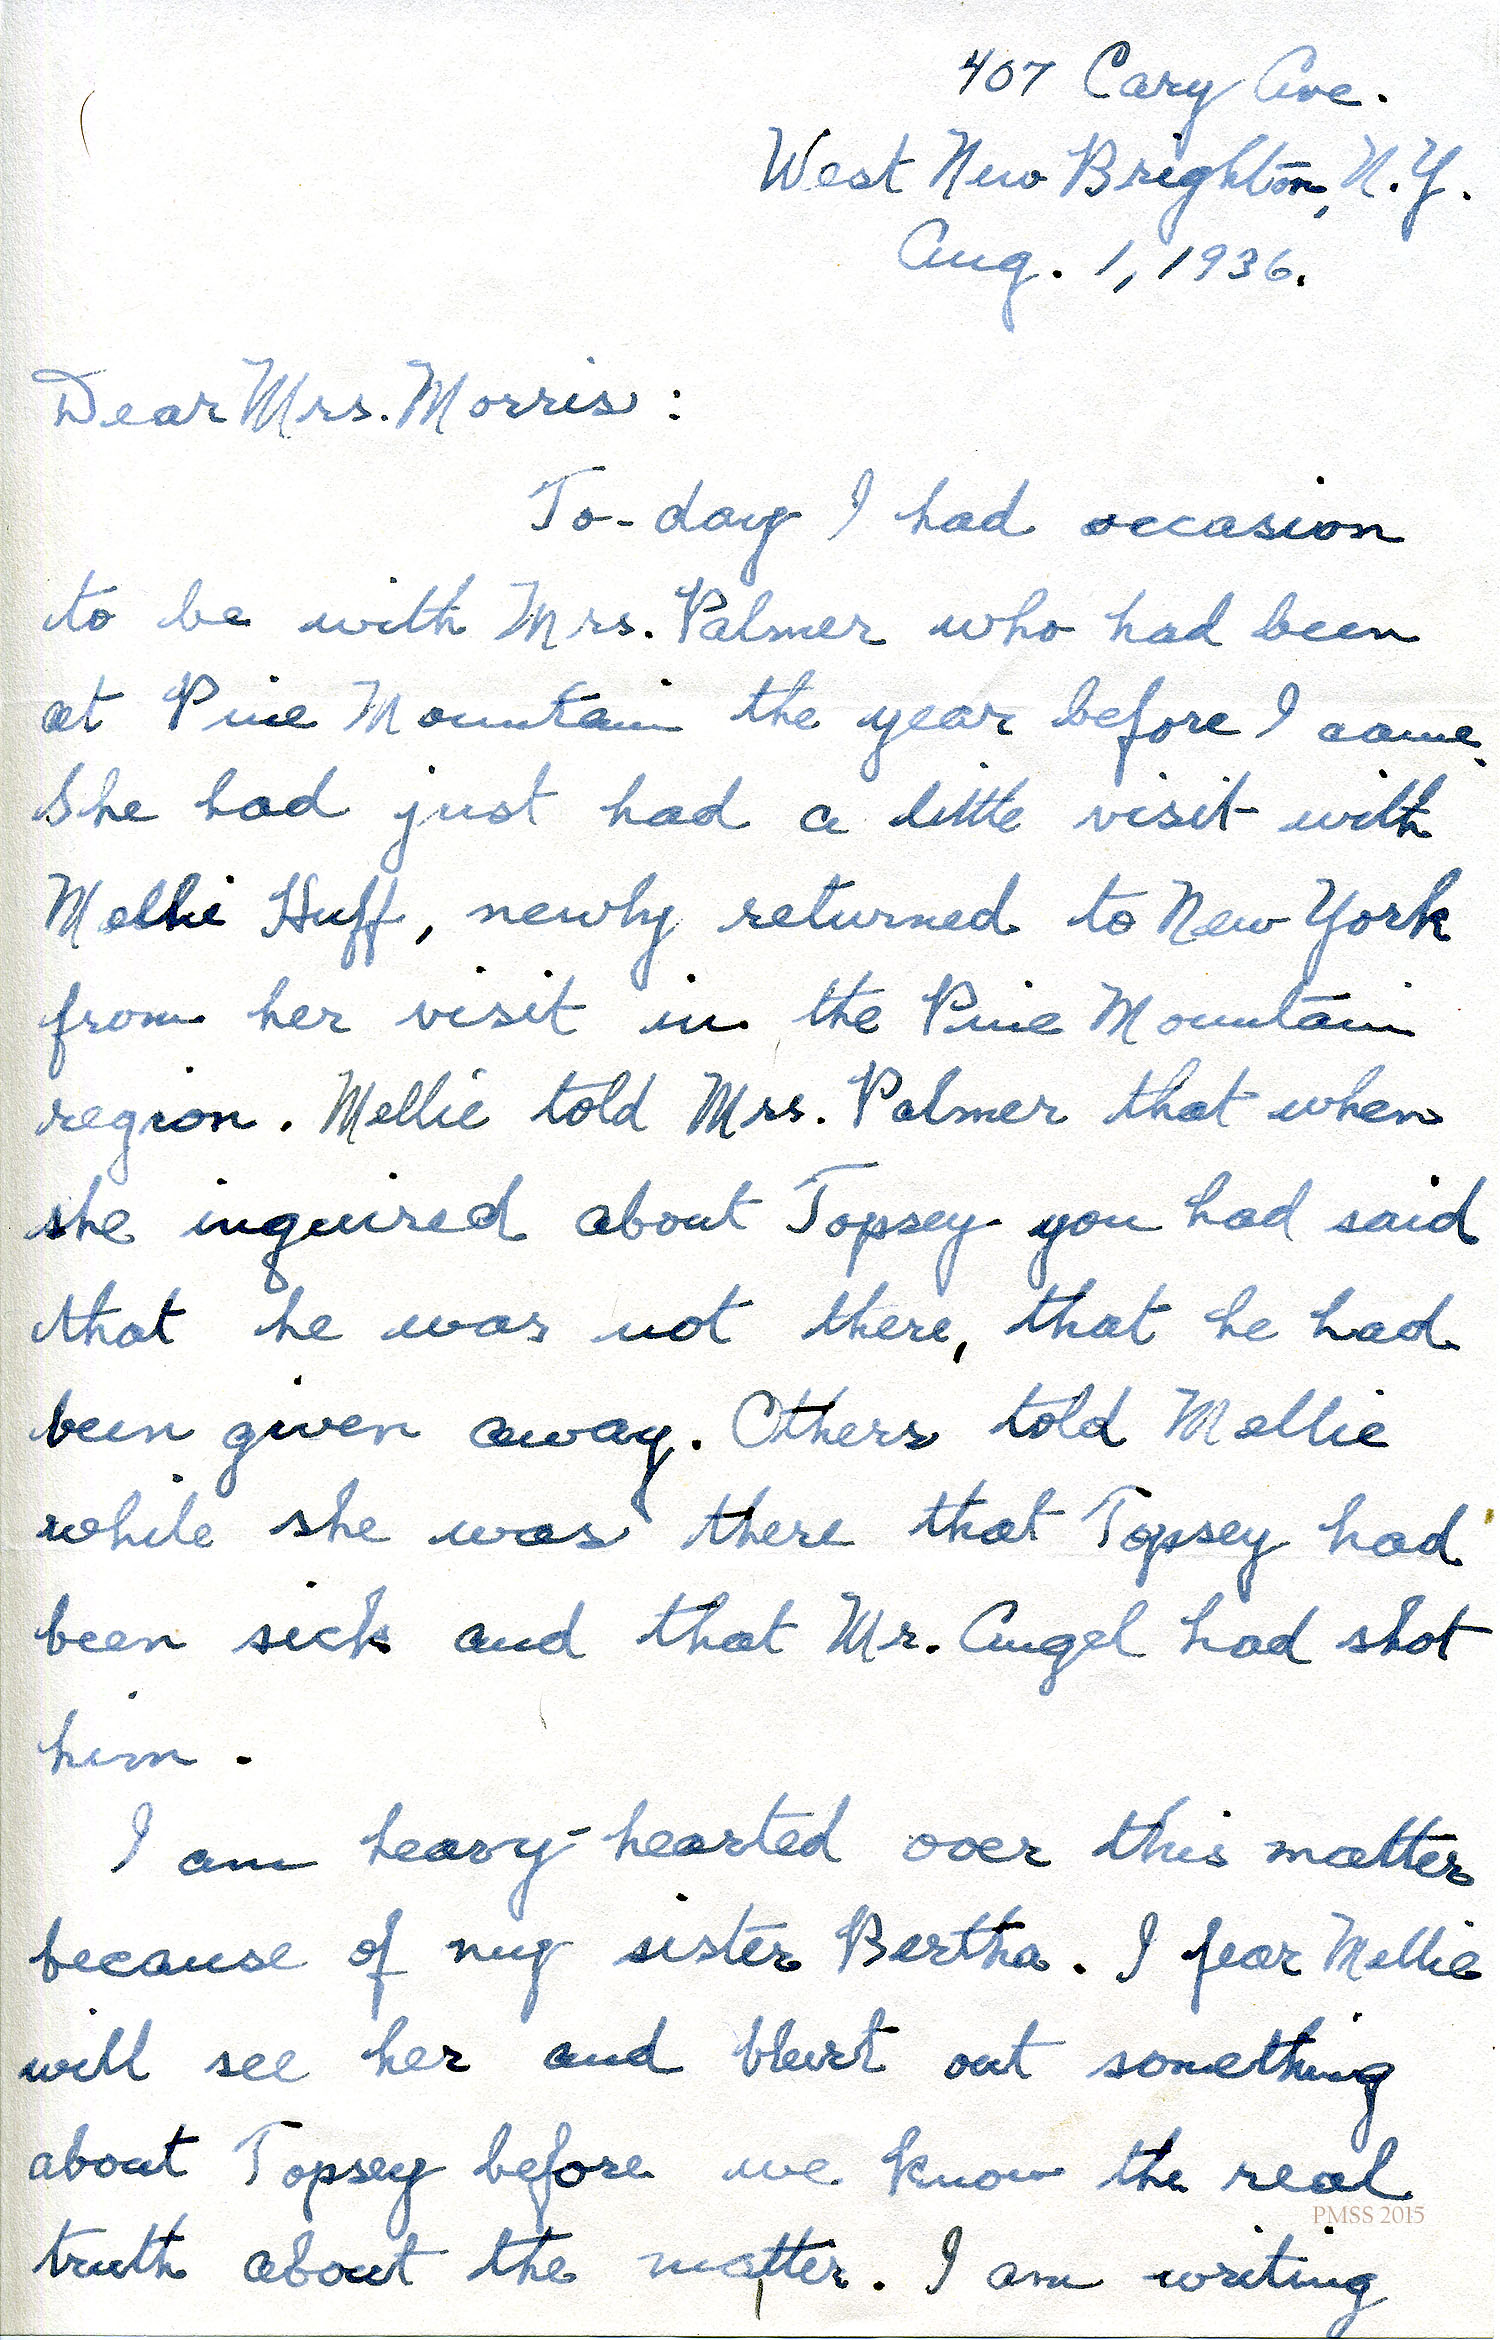 407 Cary Ave.
West New Brighton, N.Y.
Aug. 1, 1936.
Dear Mrs. Morris:
To-day I had occasion
to be with Mrs. Palmer who had been
at Pine Mountain the year before I came.
She had just had a little visit with
Mellie Huff, newly returned to New York
from her visit in the Pine Mountain
region. Mellie told Mrs. Palmer that when
she inquired about Topsey you had said
that he was not there, that he had
been given away. Others told Mellie
while she was there that Topsey had
been sick and that Mr. Angel had shot
him.
I am heavy-hearted over this matter
because of my sister Bertha. I fear Mellie
will see her and blurt out something
about Topsey before we know the real
PMSS 2015
truth about the matter. I am writing